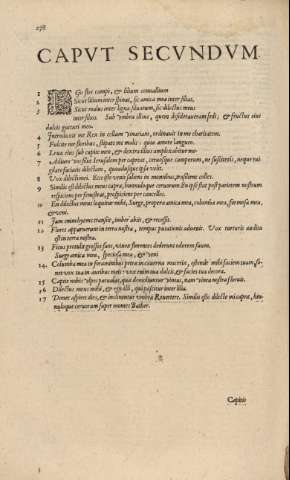 278
CAPVT SECVNDVM
1 Ego flos campi, & lilium conuallium
2 Sicut lilium inter spinas, sic amica mea inter filias,
3 Sicut malus inter ligna siluarum, sic dilectus meus
inter filios. Sub vmbra illius, quem desideraueram sedi, & fructus eius
dulcis gutturi meo.
4 Introduxit me Rex in cellam vinariam, ordinauit in me charitatem.
5 Fulcite me floribus, stipate me malis: quia amore langueo.
6 Leua eius sub capite meo, & dextera illius amplexabitur me.
7 Adiuro vos filiae Ierusalem per capreas, ceruosque camporum, ne suscitetis, neque
euigilare faciatis dilectam, quoadusque ipsa velit.
8 Vox dilecti mei. Ecce iste venit saliens in montibus, transiliens colles.
9 Similis est dilectus meus caprea, hinnuloque ceruorum En ipse stat post parietem nostrum
respiciens per fenestras, prospiciens per cancellos.
10 En dilectus meus loquitur mihi, Surge, propera amica mea, columba mea, formosa mea,
& veni.
11 Iam enim hyems transiit, imber abiit, & recessit.
12 Flores apparuerunt in terra nostra, tempus putationis aduenit. Vox turturis audita
est in terra nostra.
13 Ficus protulit grossos suos, vineae florentes dederunt odorem suum.
Surge amica mea, speciosa mea, & veni
14 Columba mea in foraminibus petrae in cauerna maceriae, ostende mihi faciem tuam, sonet
vox tua in auribus meis: vox enim tua dulcis, & facies tua decora.
15 Capite nobis vulpes paruulas, quae demoliuntur vineas, nam vinea nostra floruit.
16 Dilectus meus mihi, & ego illi, qui pascitur inter lilia.
17 Donec aspiret dies, & inclinentur vmbrae Reuertere. Similis esto dilecte mi caprae,
hinnuloque ceruorum super montes Bather.
Capitis